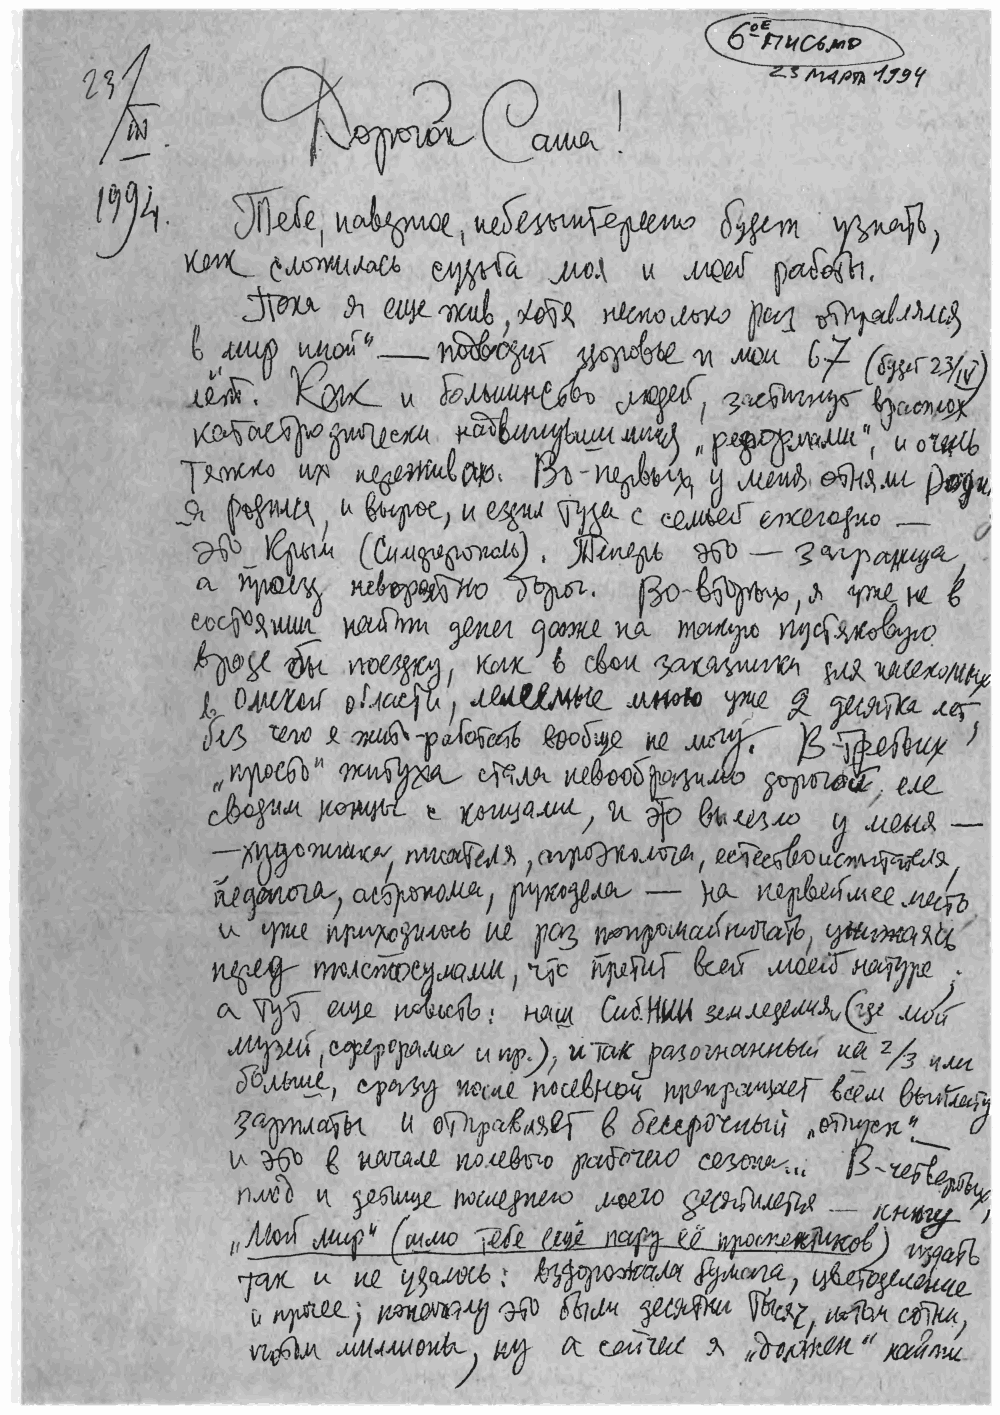 6ое письмо
23 марта 1994
23/III.
1994.
Дорогой Саша!
Тебе, наверное, небезынтересно будет узнать,
как сложилась судьба моя и моей работы.
Пока я еще жив, хотя несколько раз отправлялся
в „мир иной" — подводит здоровье и мои 67 (будет 23/IV)
лет. Как и большинство людей, застигнут врасплох
катастрофически надвинувшимися „реформами", и очень
тяжко их переживаю. Во-первых, у меня отняли Роди
я родился, и вырос, и ездил туда с семьей ежегодно —
это Крым (Симферополь). Теперь это — заграница,
а проезд невероятно дорог. Во-вторых, я уже не в
состоянии найти денег даже на такую пустяковую
вроде бы поездку, как в свои заказники для насекомых
в Омской области, лелеемые мною уже 2 десятка лет,
без чего я жить-работать вообще не могу. В-третьих,
„просто" житуха стала невообразимо дорогой, еле
сводим концы с концами, и это вылезло у меня —
—художника, писателя, агроэколога, естествоиспытателя,
педагога, астронома, рукодела — на первейшее место
и уже приходилось не раз попрошайничать, унижаясь
перед толстосумами, что претит всей моей натуре;
а тут еще новость: наш Сиб.НИИ земледелия (где мой
музей, сферорама и пр.), и так разогнанный на 2/3 или
больше, сразу после посевной прекращает всем выплату
зарплаты и отправляет в бессрочный „отпуск" —
и это в начале полевого рабочего сезона... В-четвертых,
плод и детище последнего моего десятилетия — книгу
„Мой мир" (шлю тебе ещё пару её проспектиков) издать
так и не удалось: вздорожала бумага, цветоделение
и прочее; поначалу это были десятки тысяч, потом сотни,
потом миллионы, ну а сейчас я „должен" найти